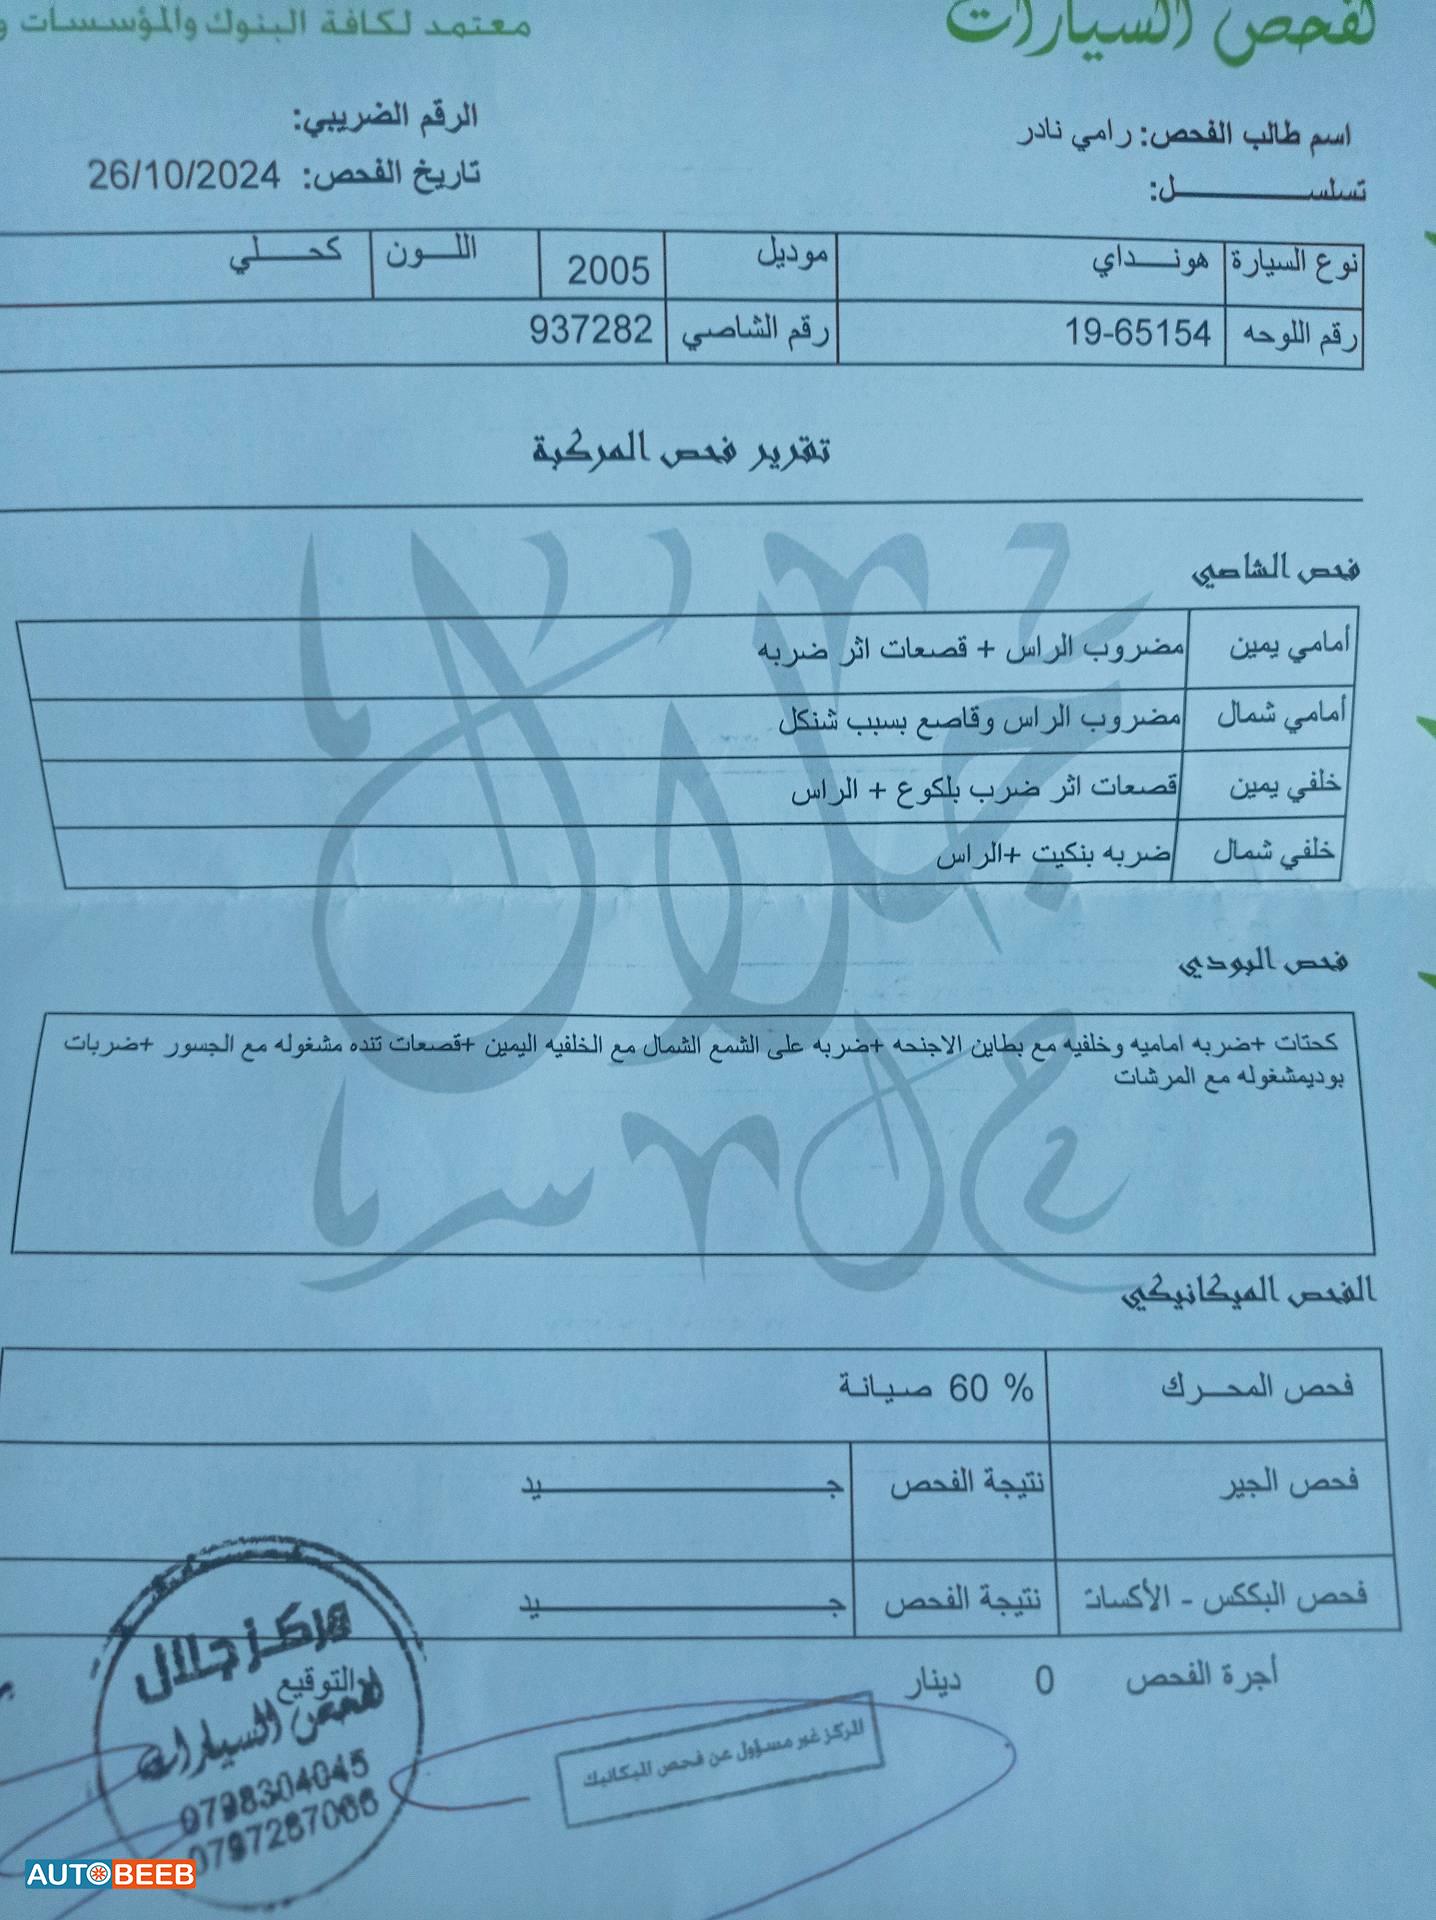 لفحص السيارات
معتمد لكافة البنوك والمؤسسات و
اسم طالب الفحص: رامي نادر
الرقم الضريبي:
تسلســـــــــل:
تاريخ الفحص: 26/10/2024
نوع السيارة هونـــداي موديل 2005 اللـــون كحـــلي
رقم اللوحه 19-65154 رقم الشاصي 937282
تقرير فحص المركبة
فحص الشاصي
أمامي يمين مضروب الراس + قصعات اثر ضربه
أمامي شمال مضروب الراس وقاصع بسبب شنكل
خلفي يمين قصعات اثر ضرب بلكوع + الراس
خلفي شمال ضربه بنكيت +الراس
فحص البودي
كحتات +ضربه اماميه وخلفيه مع بطاين الاجنحه +ضربه على الشمع الشمال مع الخلفيه اليمين +قصعات تنده مشغوله مع الجسور +ضربات
بوديمشغوله مع المرشات
الفحص الميكانيكي
فحص المحـــرك % 60 صيـانـة
فحص الجير نتيجة الفحص جـــــــــــيد
فحص البككس - الأكسات نتيجة الفحص جـــــــــــيد
أجرة الفحص 0 دينار
التوقيع
مركز جلال
لفحص السيارات
0798304045
0797287066
المركز غير مسؤول عن فحص الميكانيك
جلال
AUTOBEEB